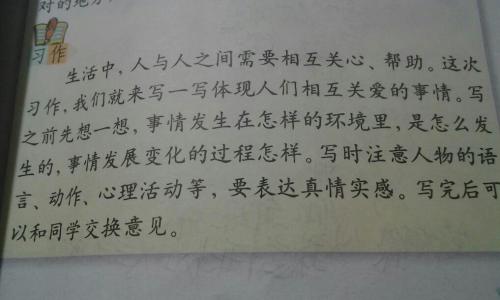 对的地方
习作
生活中,人与人之间需要相互关心、帮助。这次
习作,我们就来写一写体现人们相互关爱的事情。写
之前先想一想,事情发生在怎样的环境里,是怎么发
生的,事情发展变化的过程怎样。写时注意人物的语
言、动作、心理活动等,要表达真情实感。写完后可
以和同学交换意见。